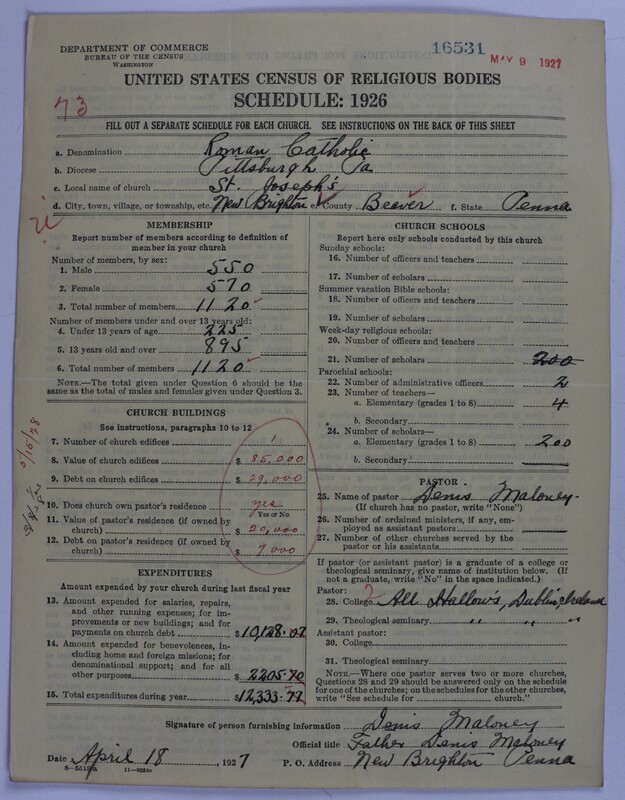 DEPARTMENT OF COMMERCE
BUREAU OF THE CENSUS
WASHINGTON
16531
MAY 9 1927
UNITED STATES CENSUS OF RELIGIOUS BODIES
SCHEDULE: 1926
73
FILL OUT A SEPARATE SCHEDULE FOR EACH CHURCH. SEE INSTRUCTIONS ON THE BACK OF THIS SHEET
a. Denomination Roman Catholic
b. Diocese Pittsburgh Pa
c. Local name of church St. Joseph's
d. City, town, village, or township, etc. New Brighton e. County Beaver f. State Penna
MEMBERSHIP
Report number of members according to definition of
member in your church
Number of members, by sex:
1. Male 550
2. Female 570
3. Total number of members 1120
Number of members under and over 13 years old:
4. Under 13 years of age 225
5. 13 years old and over 895
6. Total number of members 1120
NOTE.—The total given under Question 6 should be
the same as the total of males and females given under Question 3.
CHURCH BUILDINGS
See instructions, paragraphs 10 to 12
7. Number of church edifices 1
8. Value of church edifices $ 85,000
9. Debt on church edifices $ 29,000
10. Does church own pastor's residence yes
Yes or No
11. Value of pastor's residence (if owned by
church) $ 20,000
12. Debt on pastor's residence (if owned by
church) $ 7,000
EXPENDITURES
Amount expended by your church during last fiscal year
13. Amount expended for salaries, repairs,
and other running expenses; for im-
provements or new buildings; and for
payments on church debt $10,128.07
14. Amount expended for benevolences, in-
cluding home and foreign missions; for
denominational support; and for all
other purposes $ 2205.70
15. Total expenditures during year $12,333.77
CHURCH SCHOOLS
Report here only schools conducted by this church
Sunday schools:
16. Number of officers and teachers
17. Number of scholars
Summer vacation Bible schools:
18. Number of officers and teachers
19. Number of scholars
Week-day religious schools:
20. Number of officers and teachers
21. Number of scholars 200
Parochial schools:
22. Number of administrative officers 2
23. Number of teachers—
a. Elementary (grades 1 to 8) 4
b. Secondary
24. Number of scholars—
a. Elementary (grades 1 to 8) 200
b. Secondary
PASTOR
25. Name of pastor Denis Maloney
(If church has no pastor, write "None")
26. Number of ordained ministers, if any, em-
ployed as assistant pastors
27. Number of other churches served by the
pastor or his assistants
If pastor (or assistant pastor) is a graduate of a college or
theological seminary, give name of institution below. (If
not a graduate, write "No" in the space indicated.)
Pastor:
28. College All Hallow's, Dublin Ireland
29. Theological seminary " " "
Assistant pastor:
30. College
31. Theological seminary
NOTE.—Where one pastor serves two or more churches,
Questions 28 and 29 should be answered only on the schedule
for one of the churches; on the schedules for the other churches,
write "See schedule for church."
Signature of person furnishing information Denis Maloney
Official title Father Denis Maloney
Date April 18, 1927 P. O. Address New Brighton Penna